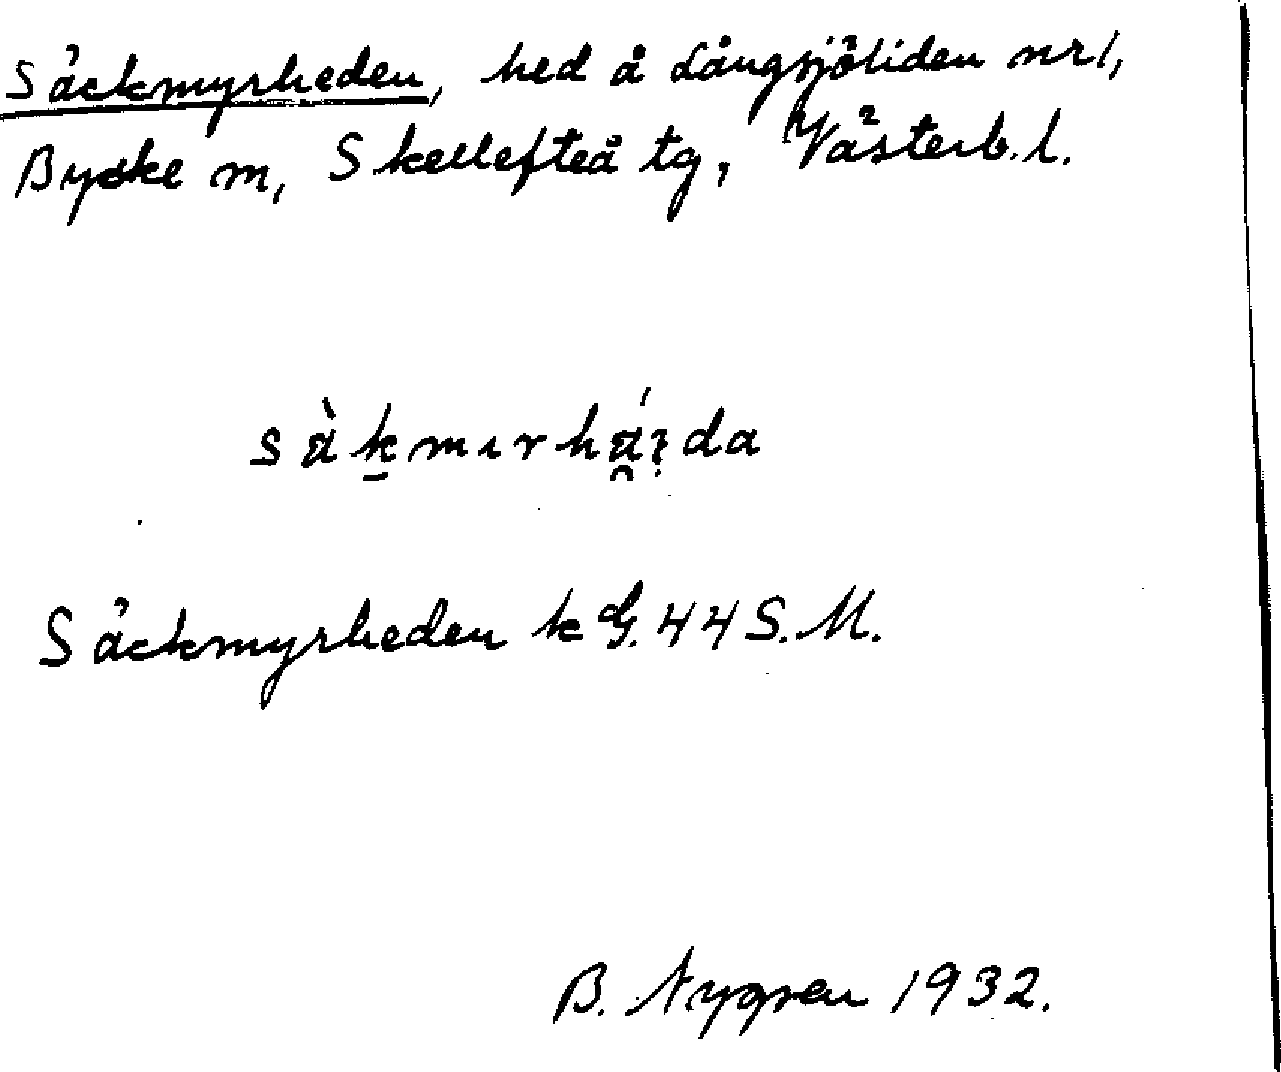 Säckmyrheden, hed å Långsjöliden nr 1,
Byske m, Skellefteå tg, Västerb. l.
Säckmyrheden k G. 44 S. M.
B. Nygren 1932.